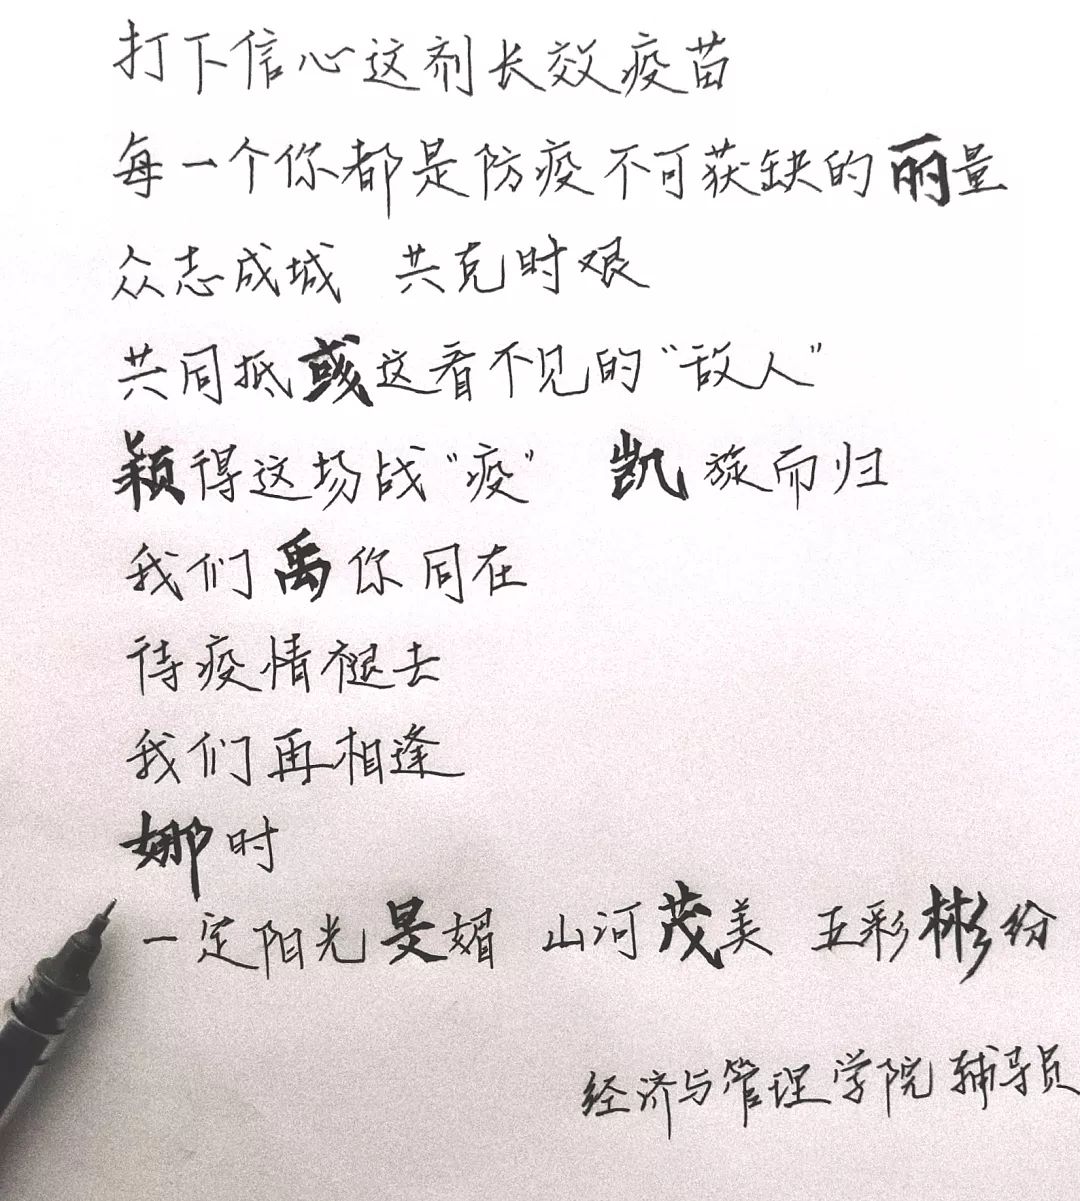 打下信心这剂长效疫苗
每一个你都是防疫不可获缺的丽量
众志成城 共克时艰
共同抵彧这看不见的“敌人”
颖得这场战“疫” 凯旋而归
我们禹你同在
待疫情褪去
我们再相逢
娜时
一定阳光旻媚 山河茂美 五彩彬纷
经济与管理学院辅导员